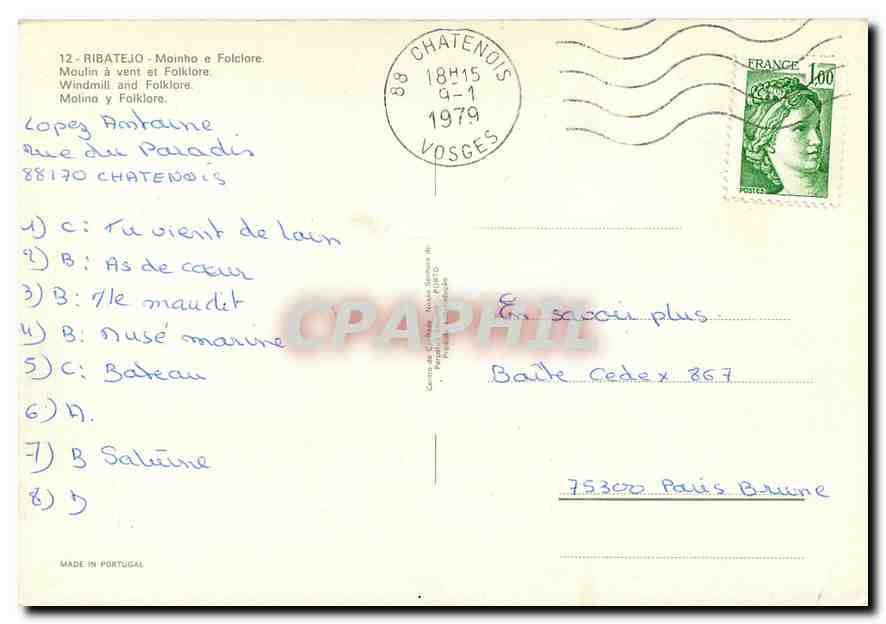 12 - RIBATEJO - Moinho e Folclore.
Moulin à vent et Folklore.
Windmill and Folklore.
Molino y Folklore.
Lopez Antoine
Rue du Paradis
88170 CHATENOIS
1) C: Tu vient de loin
2) B: As de cœur
3) B: Île maudit
4) B: Musé marine
5) C: Bateau
6) A.
7) B
8) D
MADE IN PORTUGAL
88 CHATENOIS
18H15
9-1
1979
VOSGES
FRANCE 1,00
POSTES
Centro de Caridade Nossa Senhora do
PORTO
CPAPHIL
En savoir plus.
Boîte Cedex 867
75300 Paris Brune